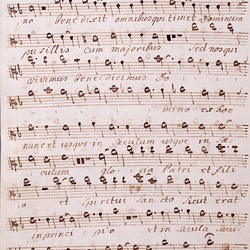 no benedixit omnibus qui timet Dominum
pusillis cum majoribus Sed nos qui
vivimus benedicimus Do
mino ex hoc
nunc et usque in Seculum usque in Se
culum glo ria Patri et fili
o et Spiritui Sancto Sicut erat
in princi pio et in Sæcula Sæcu